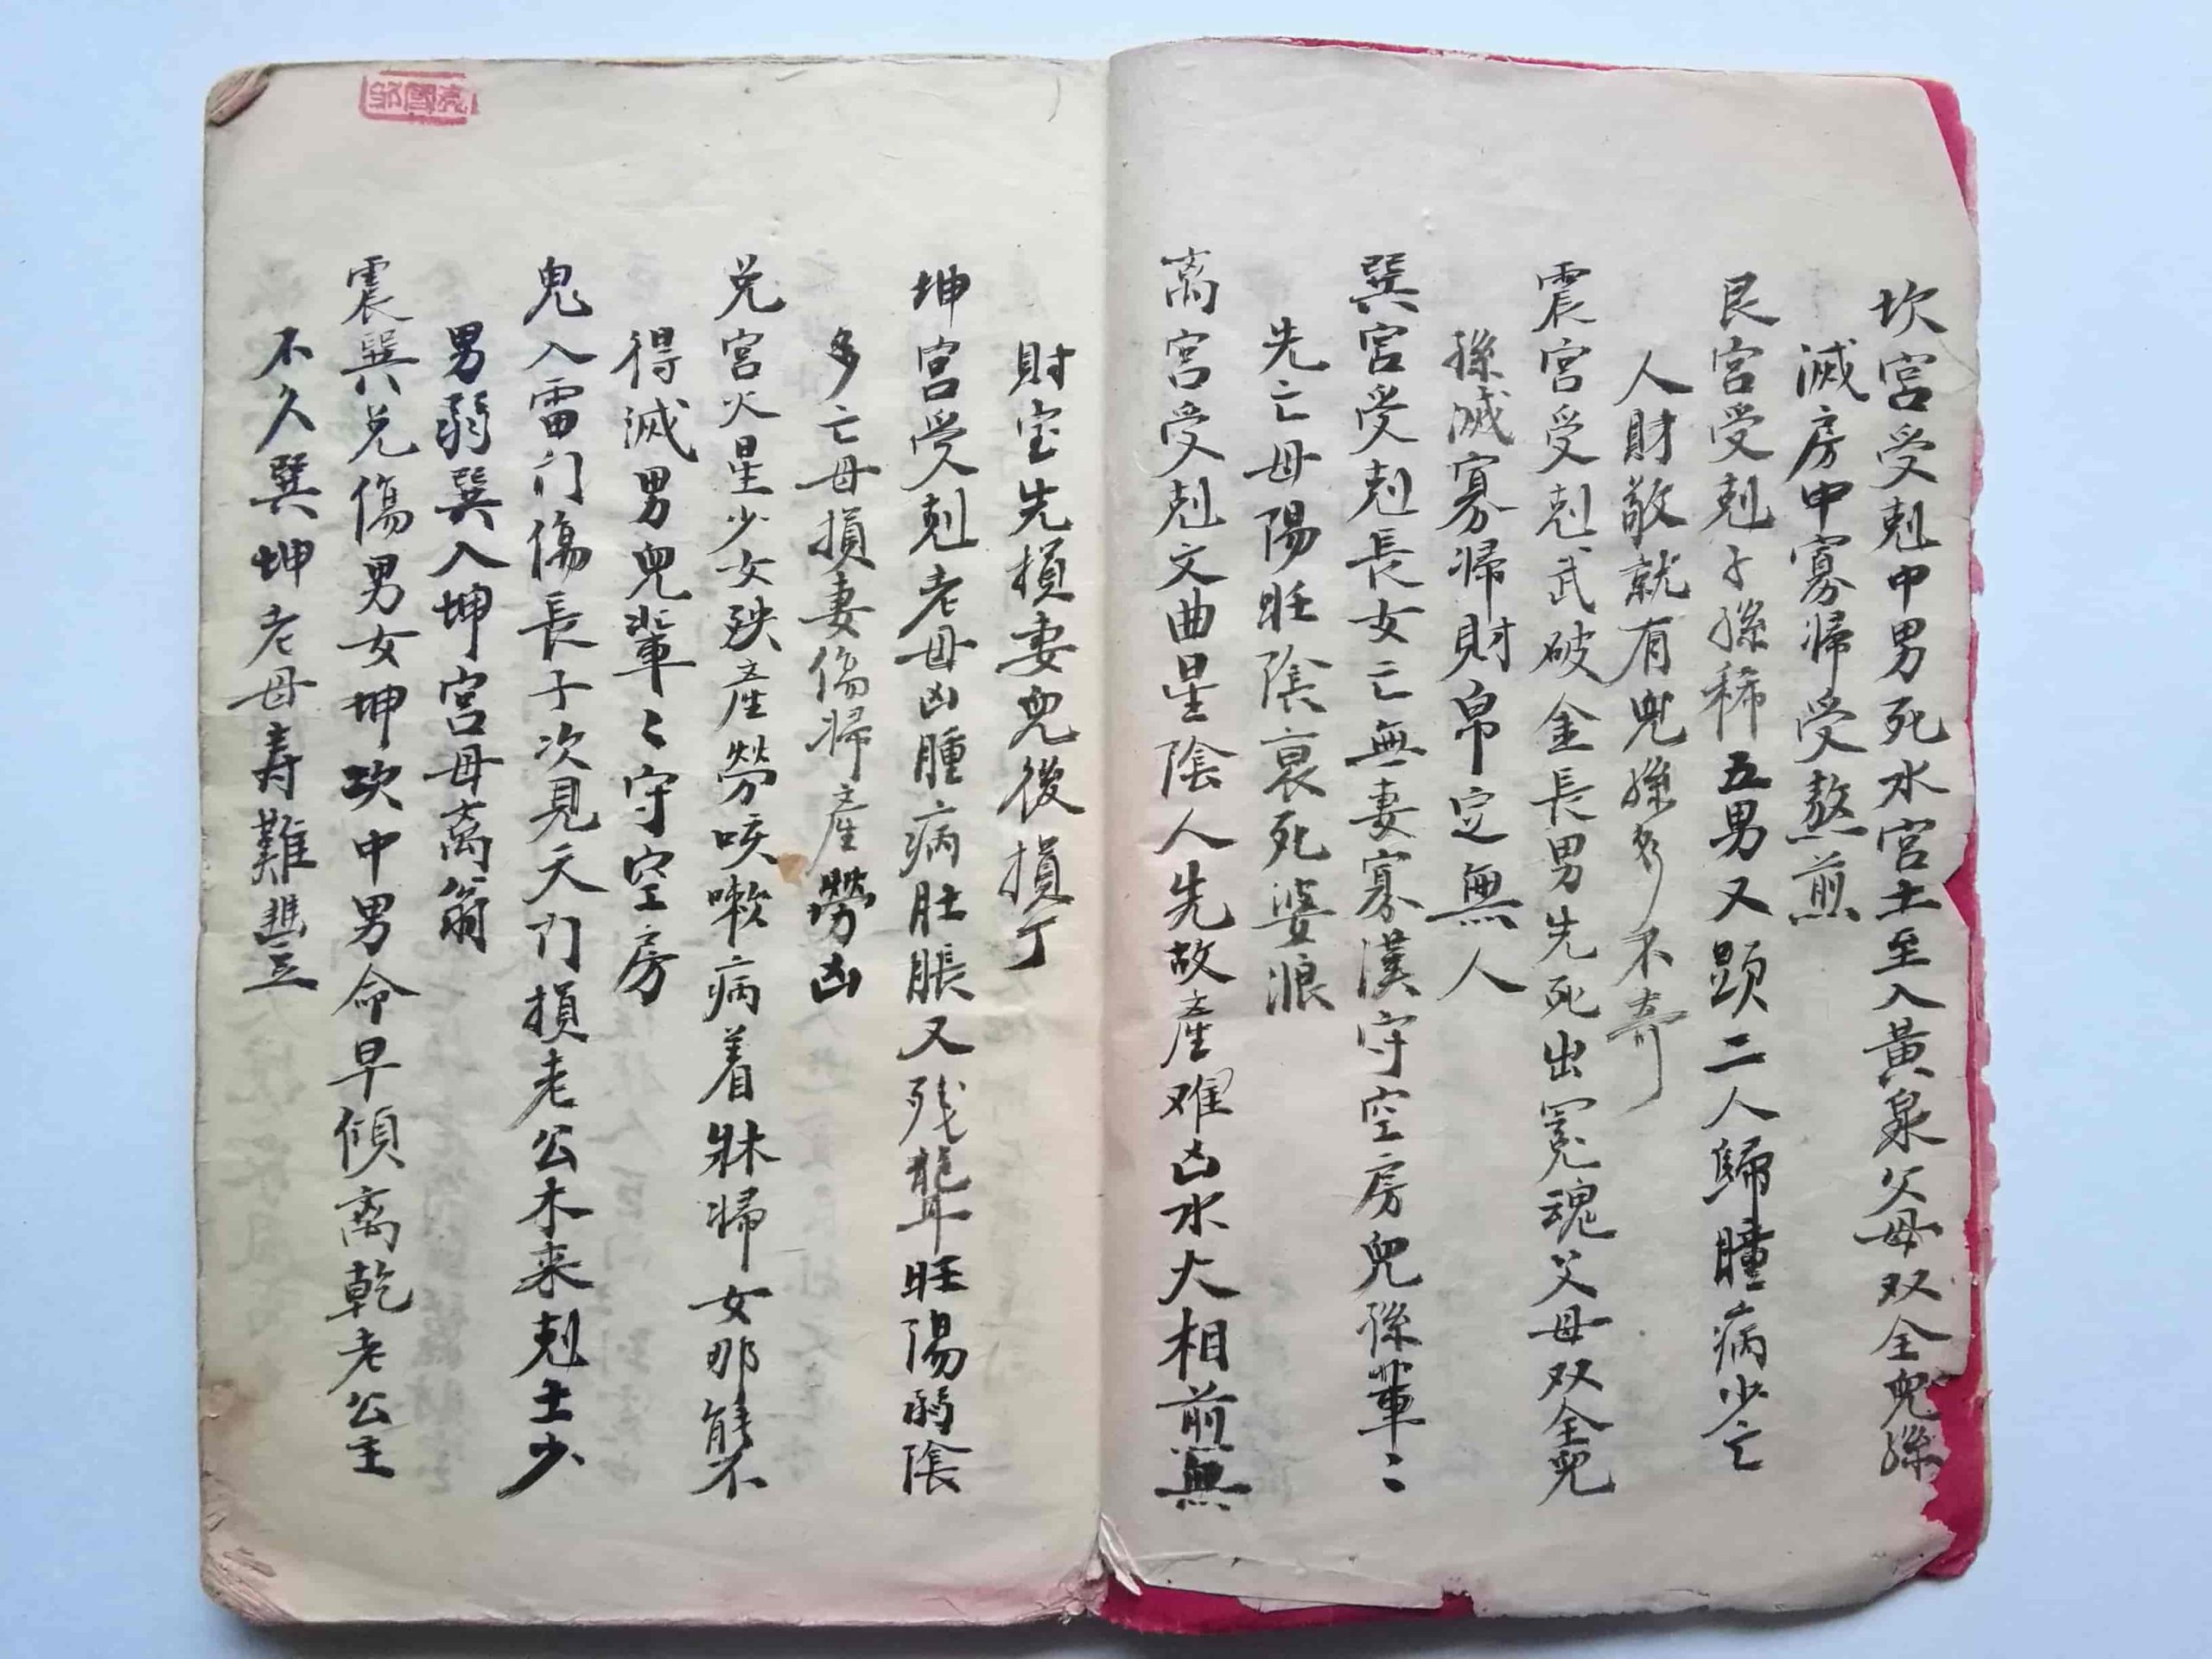 坎宮受尅中男死水宮土至入黃泉父母双全兒孫
滅房中寡帰受熬煎
艮宮受尅子孫稀五男又顕二人歸瞳病少亡
人財敬就有兜孫多不奇
震宮受尅武破金長男先死出冤魂父母双全兒
孫滅寡帰財帛定無人
巽宮受尅長女亡無妻寡漢守空房兒孫輩〻
先亡母陽旺陰衰死婆浪
离宮受尅文曲星陰人先故產难凶水大相煎無
財宝先損妻兒後損丁
坤宮受尅老母凶腫病肚脹又残聾旺陽弱陰
多亡母損妻傷帰產勞凶
兑宮火星少女殃產勞咳嗽病着牀帰女那能不
得滅男兒輩〻守空房
鬼入雷门傷長子次見天门損老公木来尅土少
男弱巽入坤宮母离翁
震巽兑傷男女坤坎中男命早傾离乾老公主
不久巽坤老母寿難豊
邹國亮